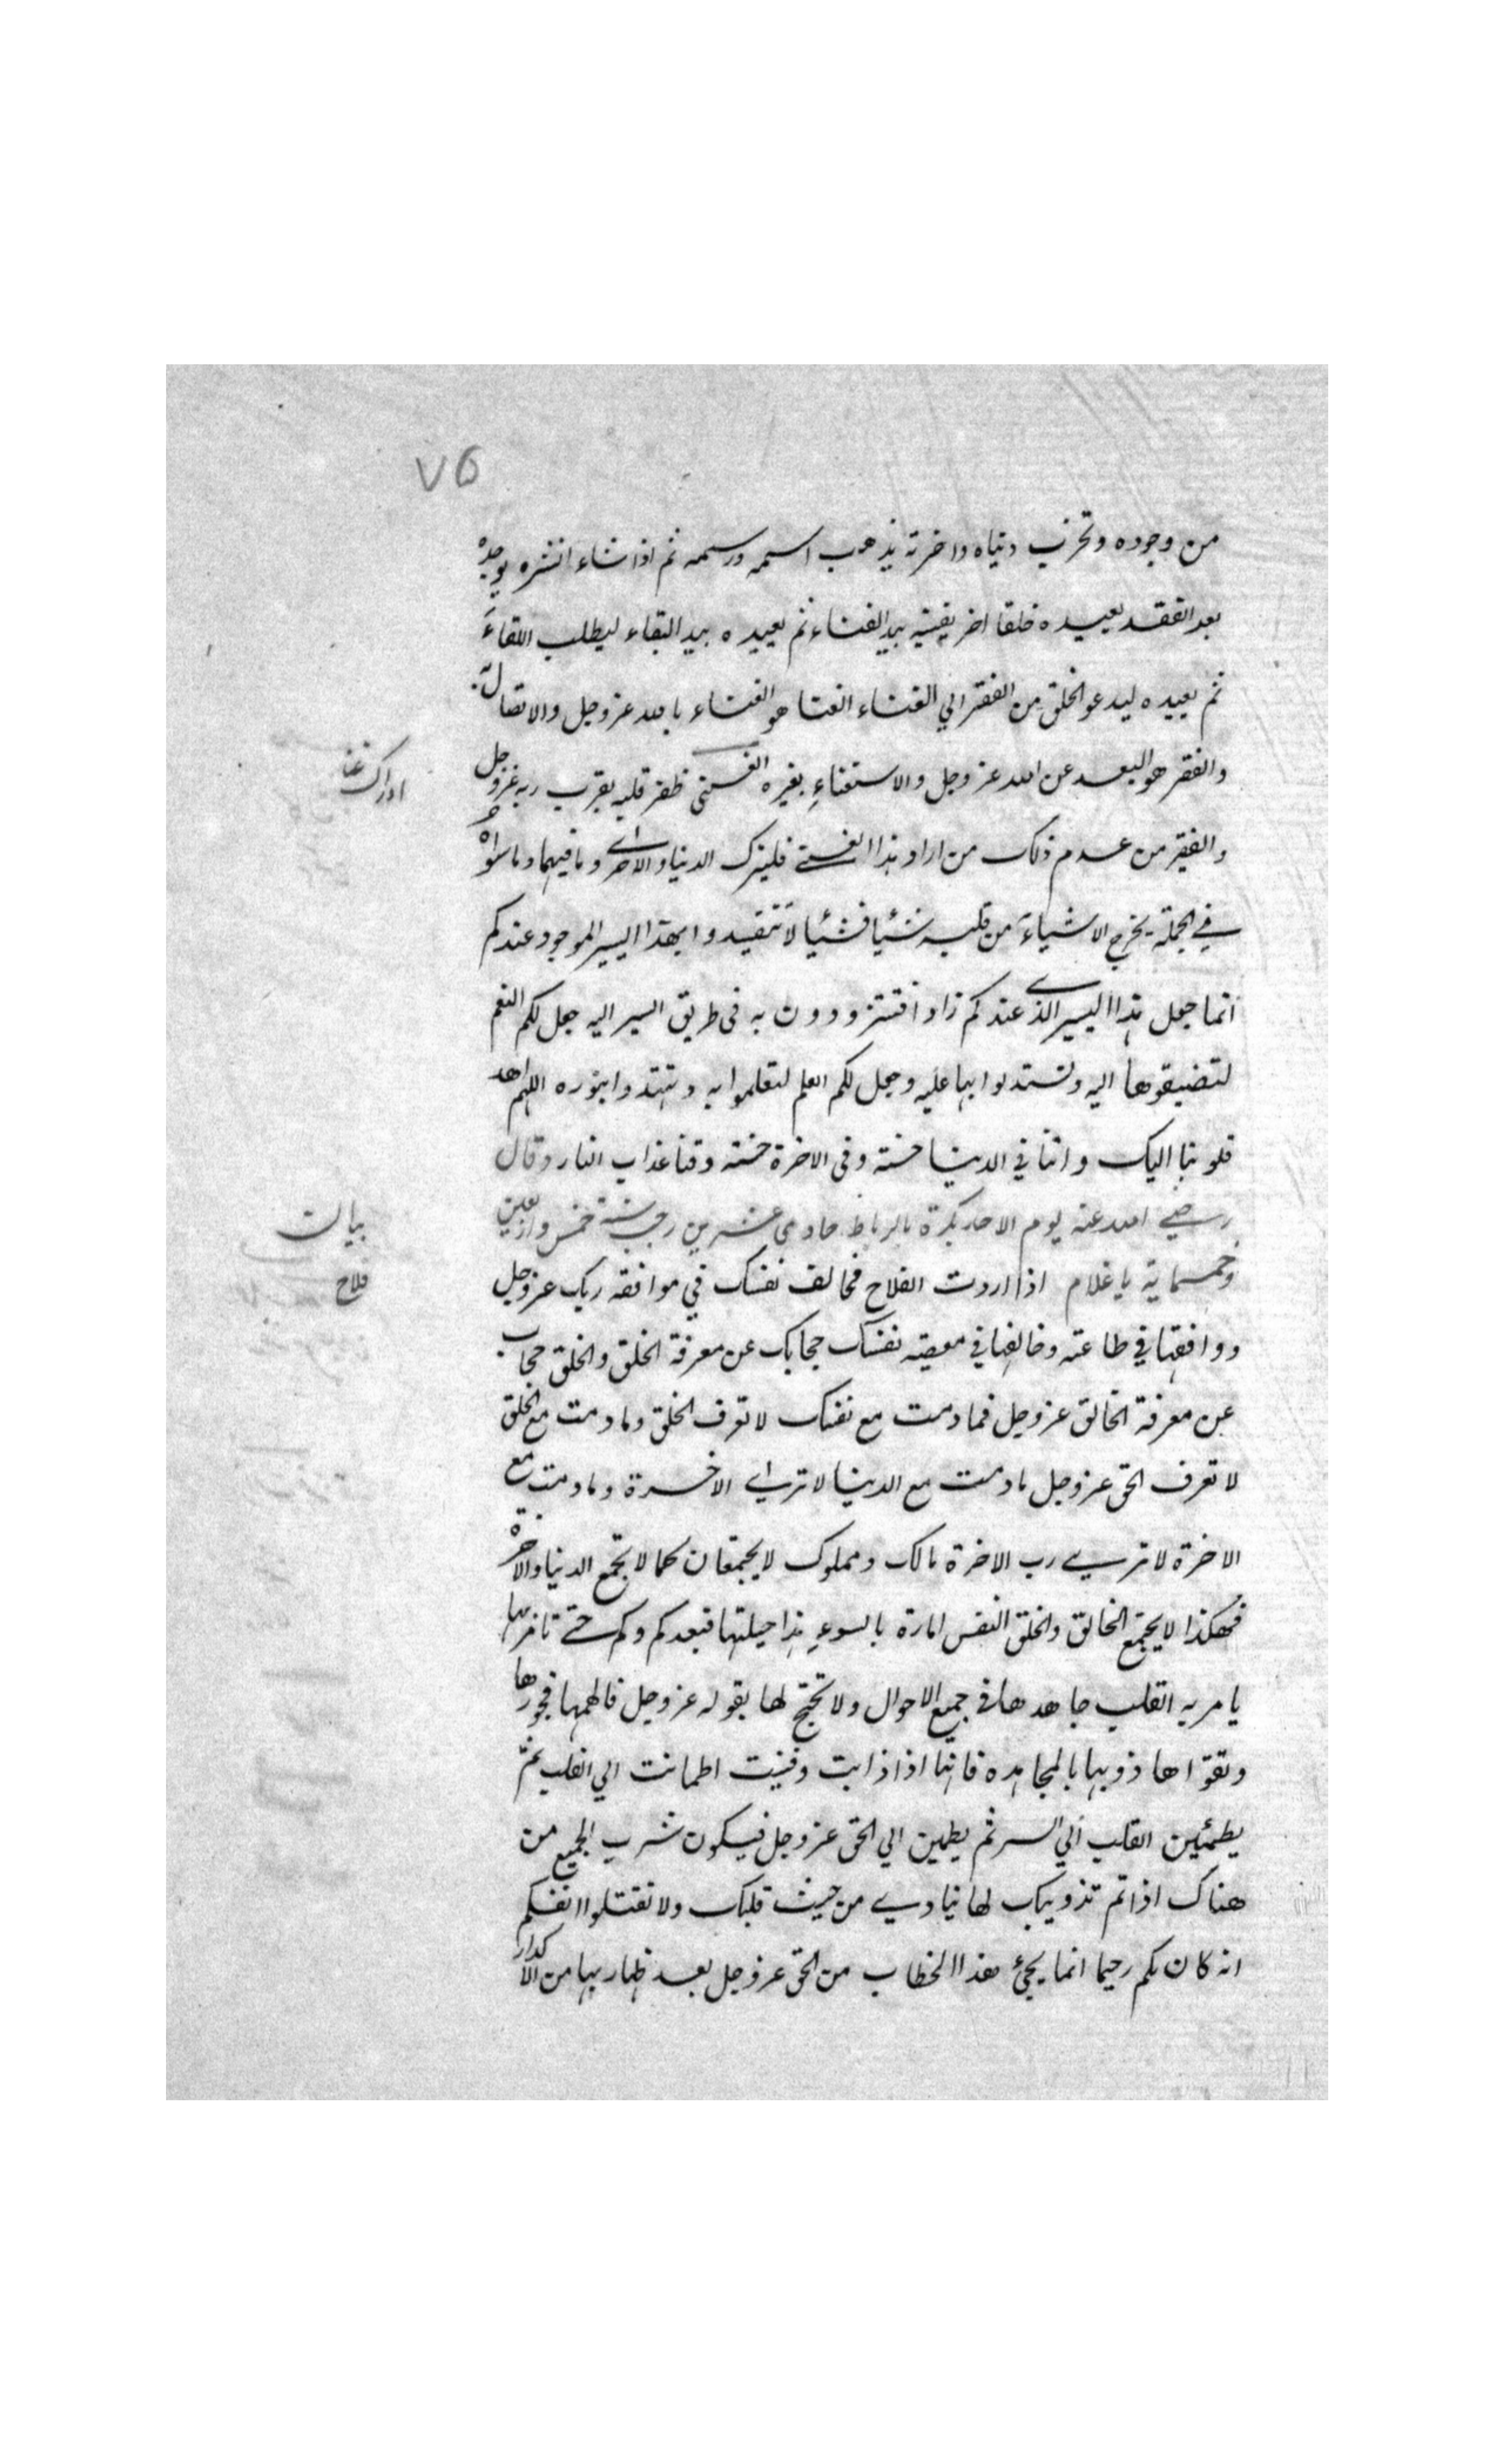 ٧٥
من وجوده وتخرب دنياه واخرته يذهب اسمه ورسمه ثم اذا شاء انشره يوجده
بعد الفقد يعيده خلقا اخر يفنيه بيد الفناء ثم يعيده بيد البقاء ليطلب اللقاء
ثم يعيده ليدعو الخلق من الفقر الي الغناء الغنا هو الغناء بالله عز وجل والاتصال به
والفقر هو البعد عن الله عز وجل والاستغناء بغيره الغنى ظفر قلبه بقرب ربه عز وجل
ادراك غنا
والفقير من عدم ذلك من اراد هذا الغنى فليترك الدنيا والاخرى وما فيهما وما سواه
في الجملة يخرج الاشياء من قلبه شئيا فشئيا لا تتقيدوا بهذا اليسير الموجود عندكم
انما جعل هذا اليسير الذي عندكم زادا فتتزودون به في طريق السير اليه جعل لكم النعم
لتضيفوها اليه وتستدلوا بها عليه وجعل لكم العلم لتعلموا به وتهتدوا بنوره اللهم اهد
قلوبنا اليك واتنا في الدينا حسنة وفي الاخرة حسنة وقنا عذاب النار وقال
رضي الله عنه يوم الاحد بكرة بالرباط حادي عشرين رجب سنة خمس واربعين
بيان
وخمسماية يا غلام اذا اردت الفلاح فخالف نفسك في موافقه ربك عز وجل
فلاح
ووافقها في طاعته وخالفها في معصيته نفسك حجابك عن معرفة الخلق والخلق حجاب
عن معرفة الخالق عز وجل فما دمت مع نفسك لا تعرف الخلق وما دمت مع الخلق
لا تعرف الحق عز وجل ما دمت مع الدينا لا ترى الاخرة وما دمت مع
الاخرة لا تري رب الاخرة مالك ومملوك لا يجتمعان كما لا تجتمع الدنيا والاخرة
فهكذا لا يجتمع الخالق والخلق النفس امارة بالسوء هذا جبلتها فبعد كم وكم حتى تامر بها
يامر به القلب جاهدها في جميع الاحوال ولا تحتج لها بقوله عز وجل فالهمها فجورها
وتقواها ذوبها بالمجاهده فانها اذا ذابت وفنيت اطمانت الي القلب ثم
يطمئين القلب الي السر ثم يطمين الي الحق عز وجل فيكون شرب الجميع من
هناك اذا تم تذويبك لها نيادي من حيث قلبك ولا تقتلوا انفسكم
انه كان بكم رحيما انما يجئ هذا الخطاب من الحق عز وجل بعد طهاربها من الاكدار